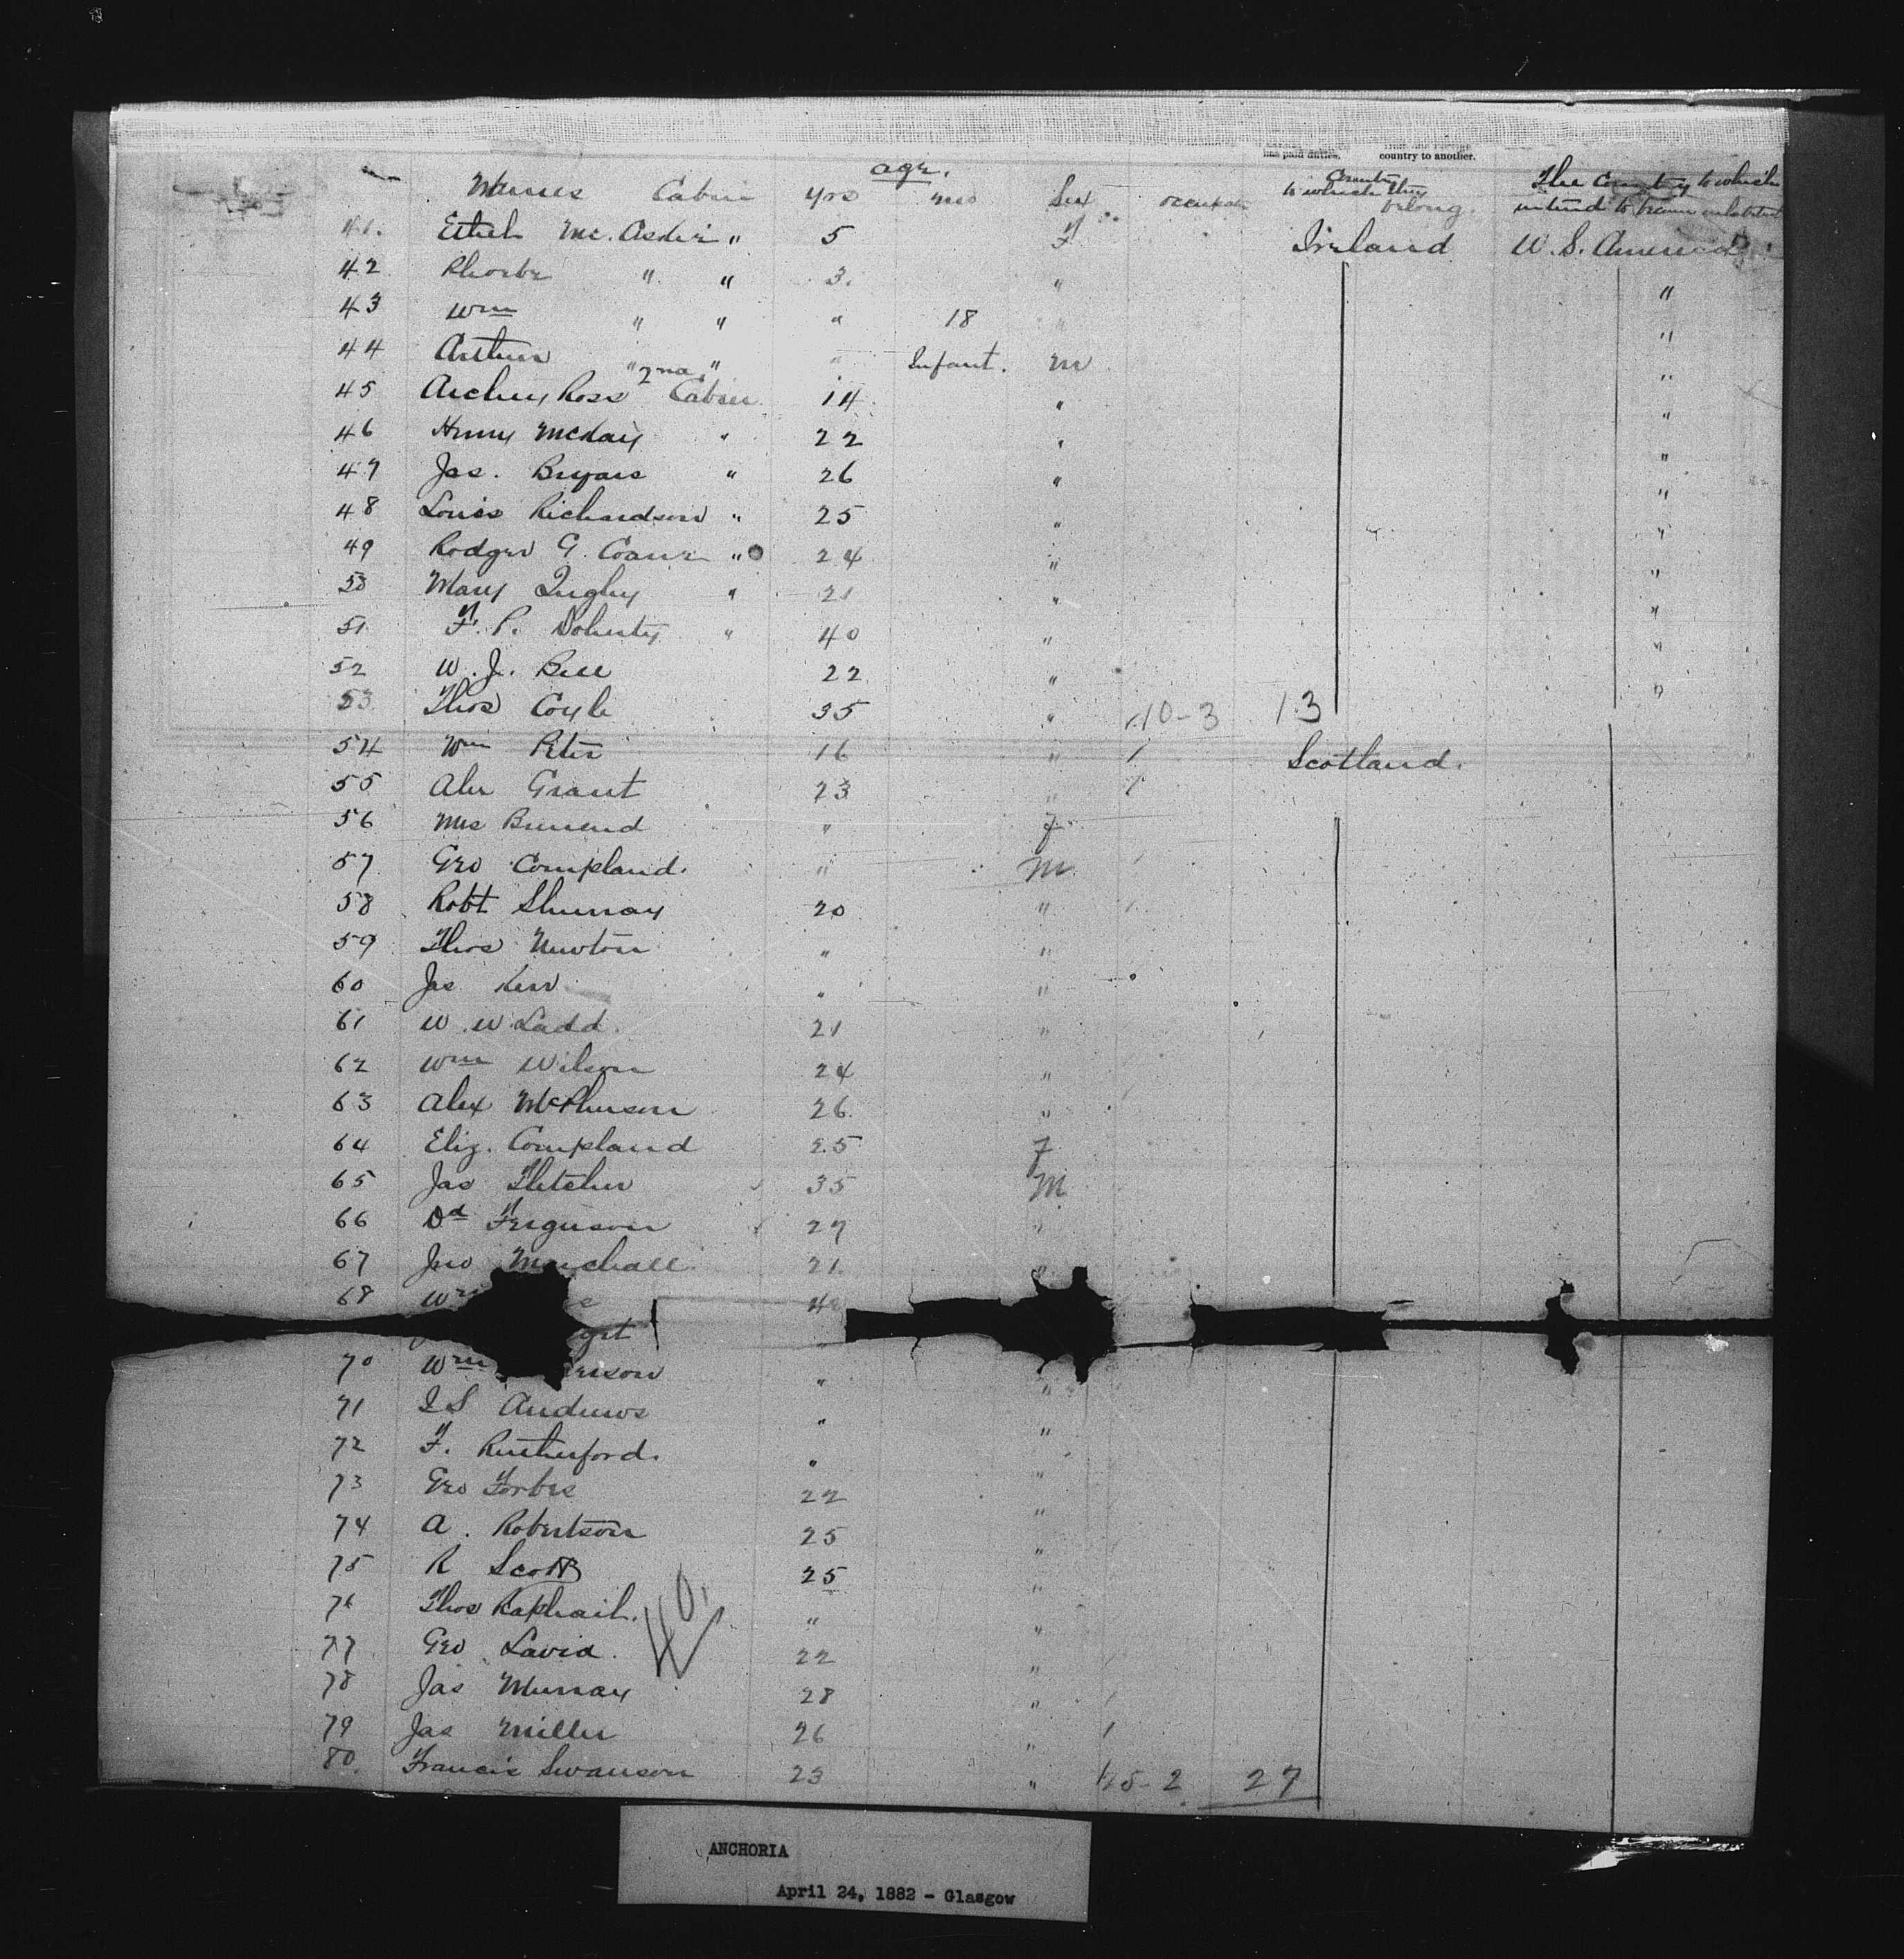 has paid duties. country to another.
age.
Names Cabin yrs mos Sex occupation Country to which they belong. The Country to which intend to become inhabitants
41. Ethel Mc. Asker " 5 F Ireland U.S. America
42 Phoebe " " 3. " "
43 Wm " " " 18 " "
44 Arthur " " " Infant. m "
45 Archey Ross 2nd Cabin 14 " "
46 Henry McKay " 22 " "
47 Jas. Bryans " 26 " "
48 Louis Richardson " 25 " "
49 Rodger G. Coane " 24 " "
50 Mary Quigley " 21 " "
51 F. P. Doherty " 40 " "
52 W. J. Bell 22 " "
53 Thos Coyle 35 " 10-3 13
54 Wm Peter 16 " Scotland.
55 Alex Grant 23 "
56 Mrs " F
57 Geo Compland. " M
58 Robt 20 "
59 Thos Newton " "
60 Jas Kerr " "
61 W. W Ladd. 21 "
62 Wm Wilson 24 "
63 Alex McPherson 26 "
64 Eliz. Compland 25 F
65 Jas Fletcher 35 M
66 Dd Ferguson 27 "
67 Jno Marshall 21. "
68 Wm
70 Wm " "
71 J S Andrews " "
72 F. Rutherford. " "
73 Geo Forbes 22 "
74 A. Robertson 25 "
75 R Scott 25 "
76 Thos Raphail. " "
40.
77 Geo Lavid. 22 "
78 Jas Murray 28 "
79 Jas Miller 26 "
80. Francis Swanson 23 " 25-2 27
ANCHORIA
April 24, 1882 - Glasgow